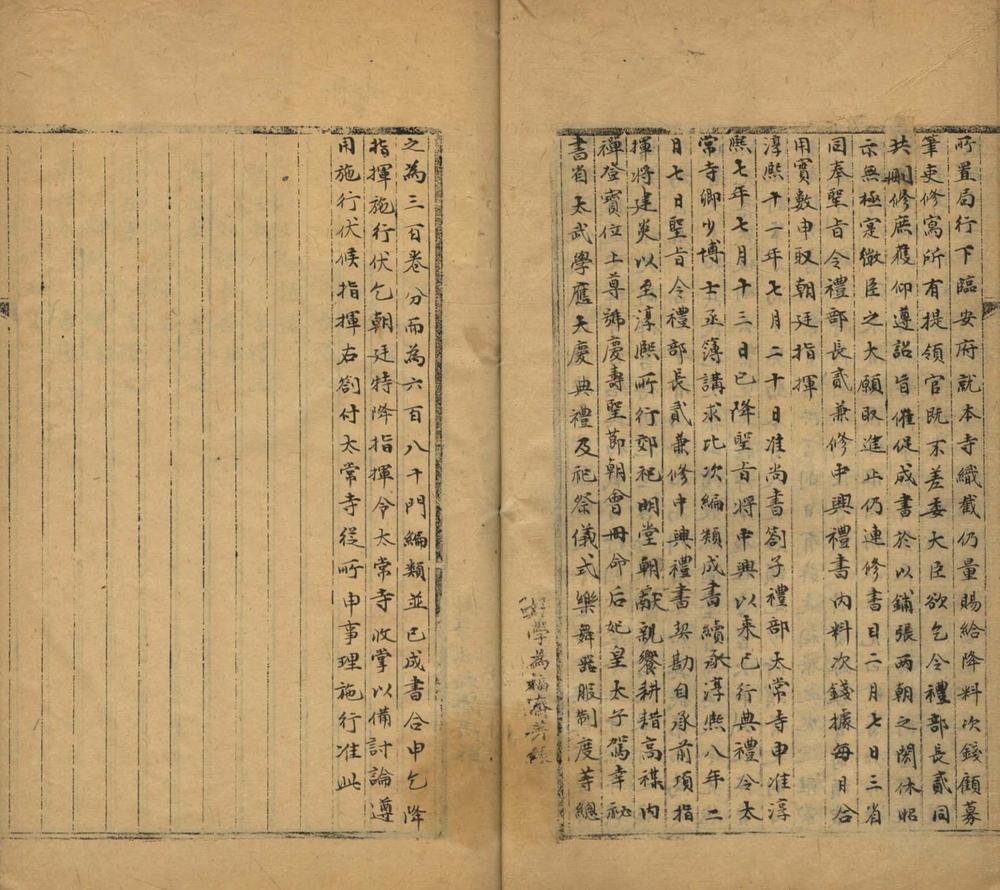 所置局行下臨安府就本寺織截仍量賜給降料次錢顧募
筆吏修寫所有提領官既不差委大臣欲乞令禮部長貳同
共刪修庶獲仰遵詔旨催促成書於以鋪張兩朝之閎休昭
示無極寔微臣之大願取進止仍連修書日二月七日三省
同奉聖旨令禮部長貳兼修中興禮書內料次錢據每月合
用實數申取朝廷指揮
淳熙十一年七月二十日准尚書劄子禮部太常寺申准淳
熙七年七月十三日已降聖旨將中興以來已行典禮令太
常寺卿少博士丞簿講求比次編類成書續承淳熙八年二
日七日聖旨令禮部長貳兼修中興禮書契勘自承前項指
揮將建炎以至淳熙所行郊祀明堂朝獻親饗耕耤高禖內
禪登寶位上尊號慶壽聖節朝會冊命后妃皇太子駕幸祕
書省太武學應天慶典禮及祀祭儀式樂舞器服制度等總
之為三百卷分而為六百八十門編類並已成書合申乞降
指揮施行伏乞朝廷特降指揮令太常寺收掌以備討論遵
用施行伏候指揮右劄付太常寺從所申事理施行准此
學為福齋